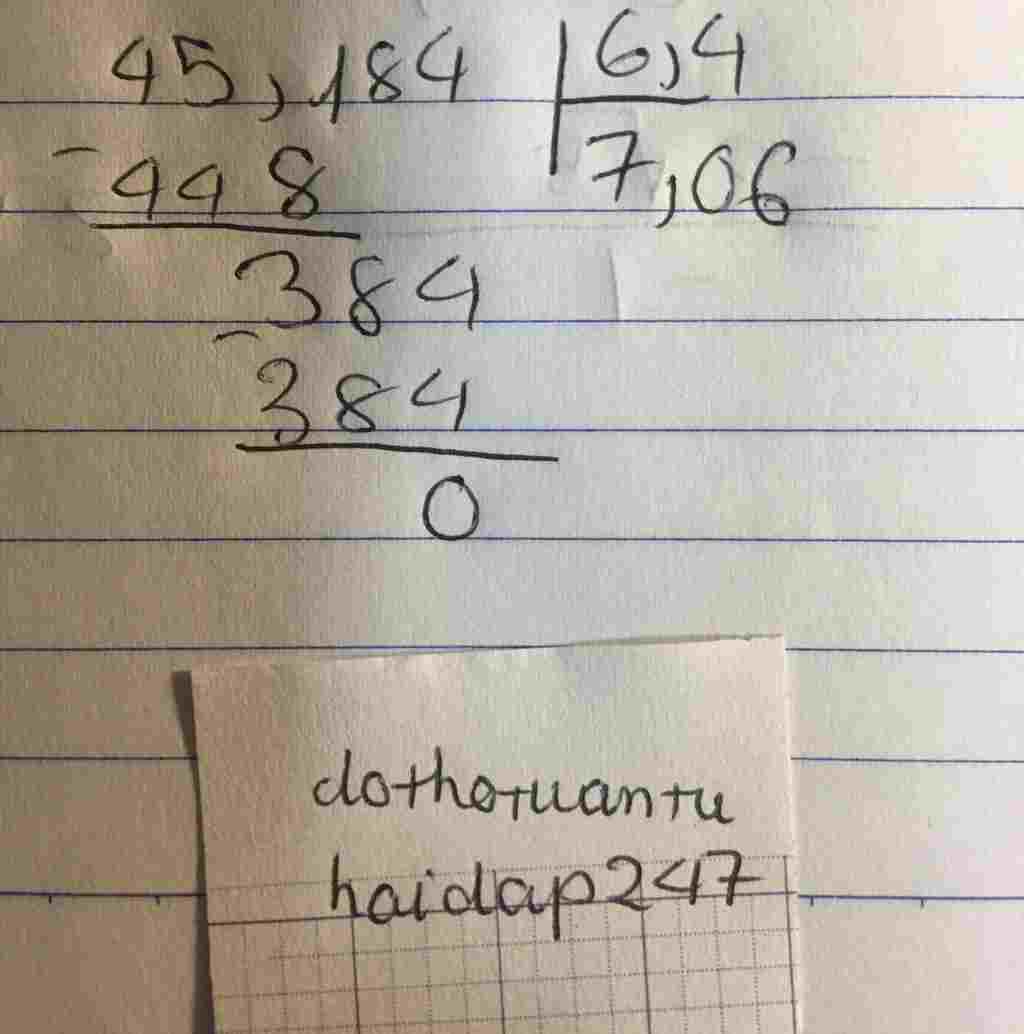 45,184 6,4
- 448 7,06
384
- 384
0
dothotuantu
hoidap247